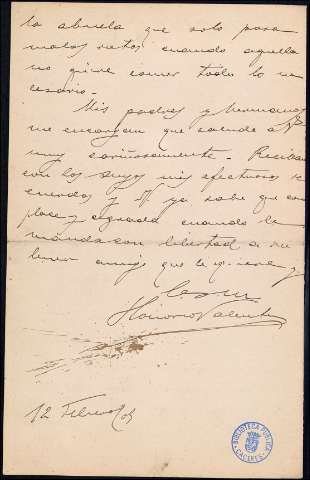 la abuela que solo pasa
malos ratos cuando aquella
no quiere comer todo lo ne
cesario.-
Mis padres y hermanas
me encargan que salude a Vs
muy cariñosamente.- Reciban
con los suyos mis afectuosos re
cuerdos y V. ya sabe que com
place y agrada cuando le
manda con libertad a su
buen amigo que le quiere y
Honorio Valentin
12 Febrero
BIBLIOTECA PUBLICA
CACERES